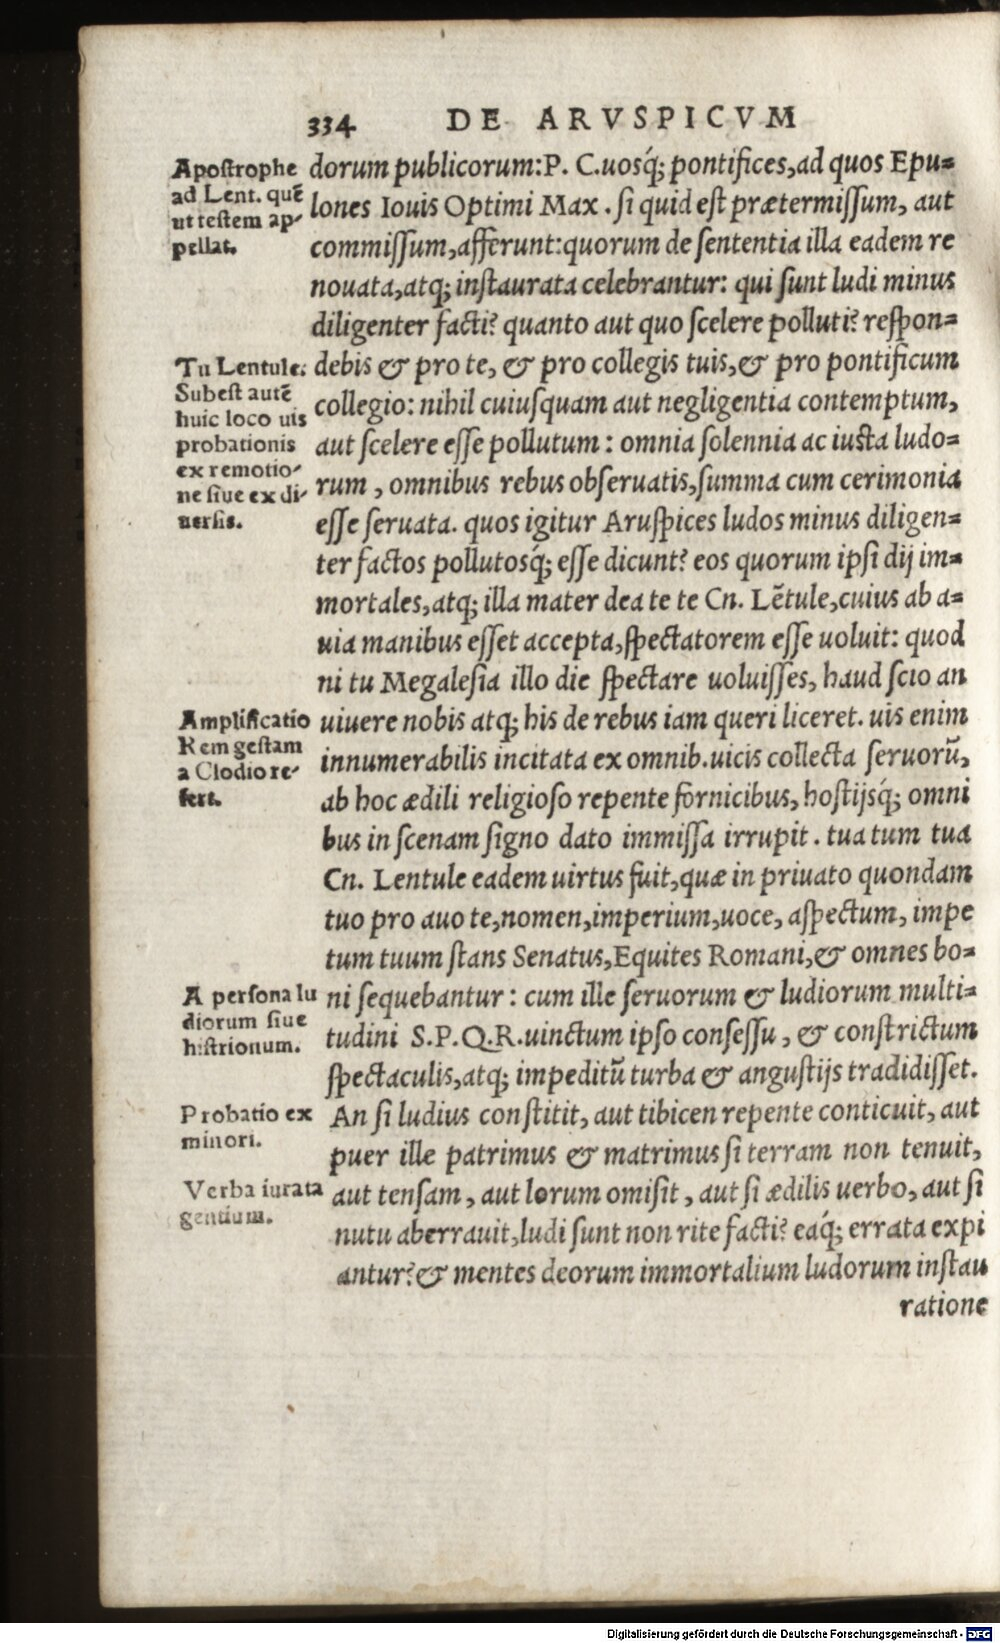 334 DE ARVSPICVM
Apostrophe
ad Lent. quẽ
ut testem ap-
pellat.
dorum publicorum: P. C. uosq́; pontifices, ad quos Epu=
lones Iouis Optimi Max. si quid est prætermissum, aut
commissum, afferunt: quorum de sententia illa eadem re
nouata, atq; instaurata celebrantur: qui sunt ludi minus
diligenter facti? quanto aut quo scelere polluti? respon=
Tu Lentule.
Subest autẽ
huic loco uis
probationis
ex remotio-
ne siue ex di-
uersis.
debis & pro te, & pro collegis tuis, & pro pontificum
collegio: nihil cuiusquam aut negligentia contemptum,
aut scelere esse pollutum: omnia solennia ac iusta ludo=
rum, omnibus rebus obseruatis, summa cum cerimonia
esse seruata. quos igitur Aruspices ludos minus diligen=
ter factos pollutosq́; esse dicunt? eos quorum ipsi dij im=
mortales, atq; illa mater dea te te Cn. Lẽtule, cuius ab a=
uia manibus esset accepta, spectatorem esse uoluit: quod
ni tu Megalesia illo die spectare uoluisses, haud scio an
Amplificatio
Rem gestam
a Clodio re-
fert.
uiuere nobis atq; his de rebus iam queri liceret. uis enim
innumerabilis incitata ex omnib. uicis collecta seruorũ,
ab hoc ædili religioso repente fornicibus, hostijsq́; omni
bus in scenam signo dato immissa irrupit. tua tum tua
Cn. Lentule eadem uirtus fuit, quæ in priuato quondam
tuo pro auo te, nomen, imperium, uoce, aspectum, impe
tum tuum stans Senatus, Equites Romani, & omnes bo=
A persona lu
diorum siue
histrionum.
ni sequebantur: cum ille seruorum & ludiorum multi=
tudini S. P. Q. R. uinctum ipso consessu, & constrictum
spectaculis, atq; impeditũ turba & angustijs tradidisset.
Probatio ex
minori.
An si ludius constitit, aut tibicen repente conticuit, aut
puer ille patrimus & matrimus si terram non tenuit,
Verba iurata
gentium.
aut tensam, aut lorum omisit, aut si ædilis uerbo, aut si
nutu aberrauit, ludi sunt non rite facti? eaq́; errata expi
antur? & mentes deorum immortalium ludorum instau
ratione
Digitalisierung gefördert durch die Deutsche Forschungsgemeinschaft - DFG